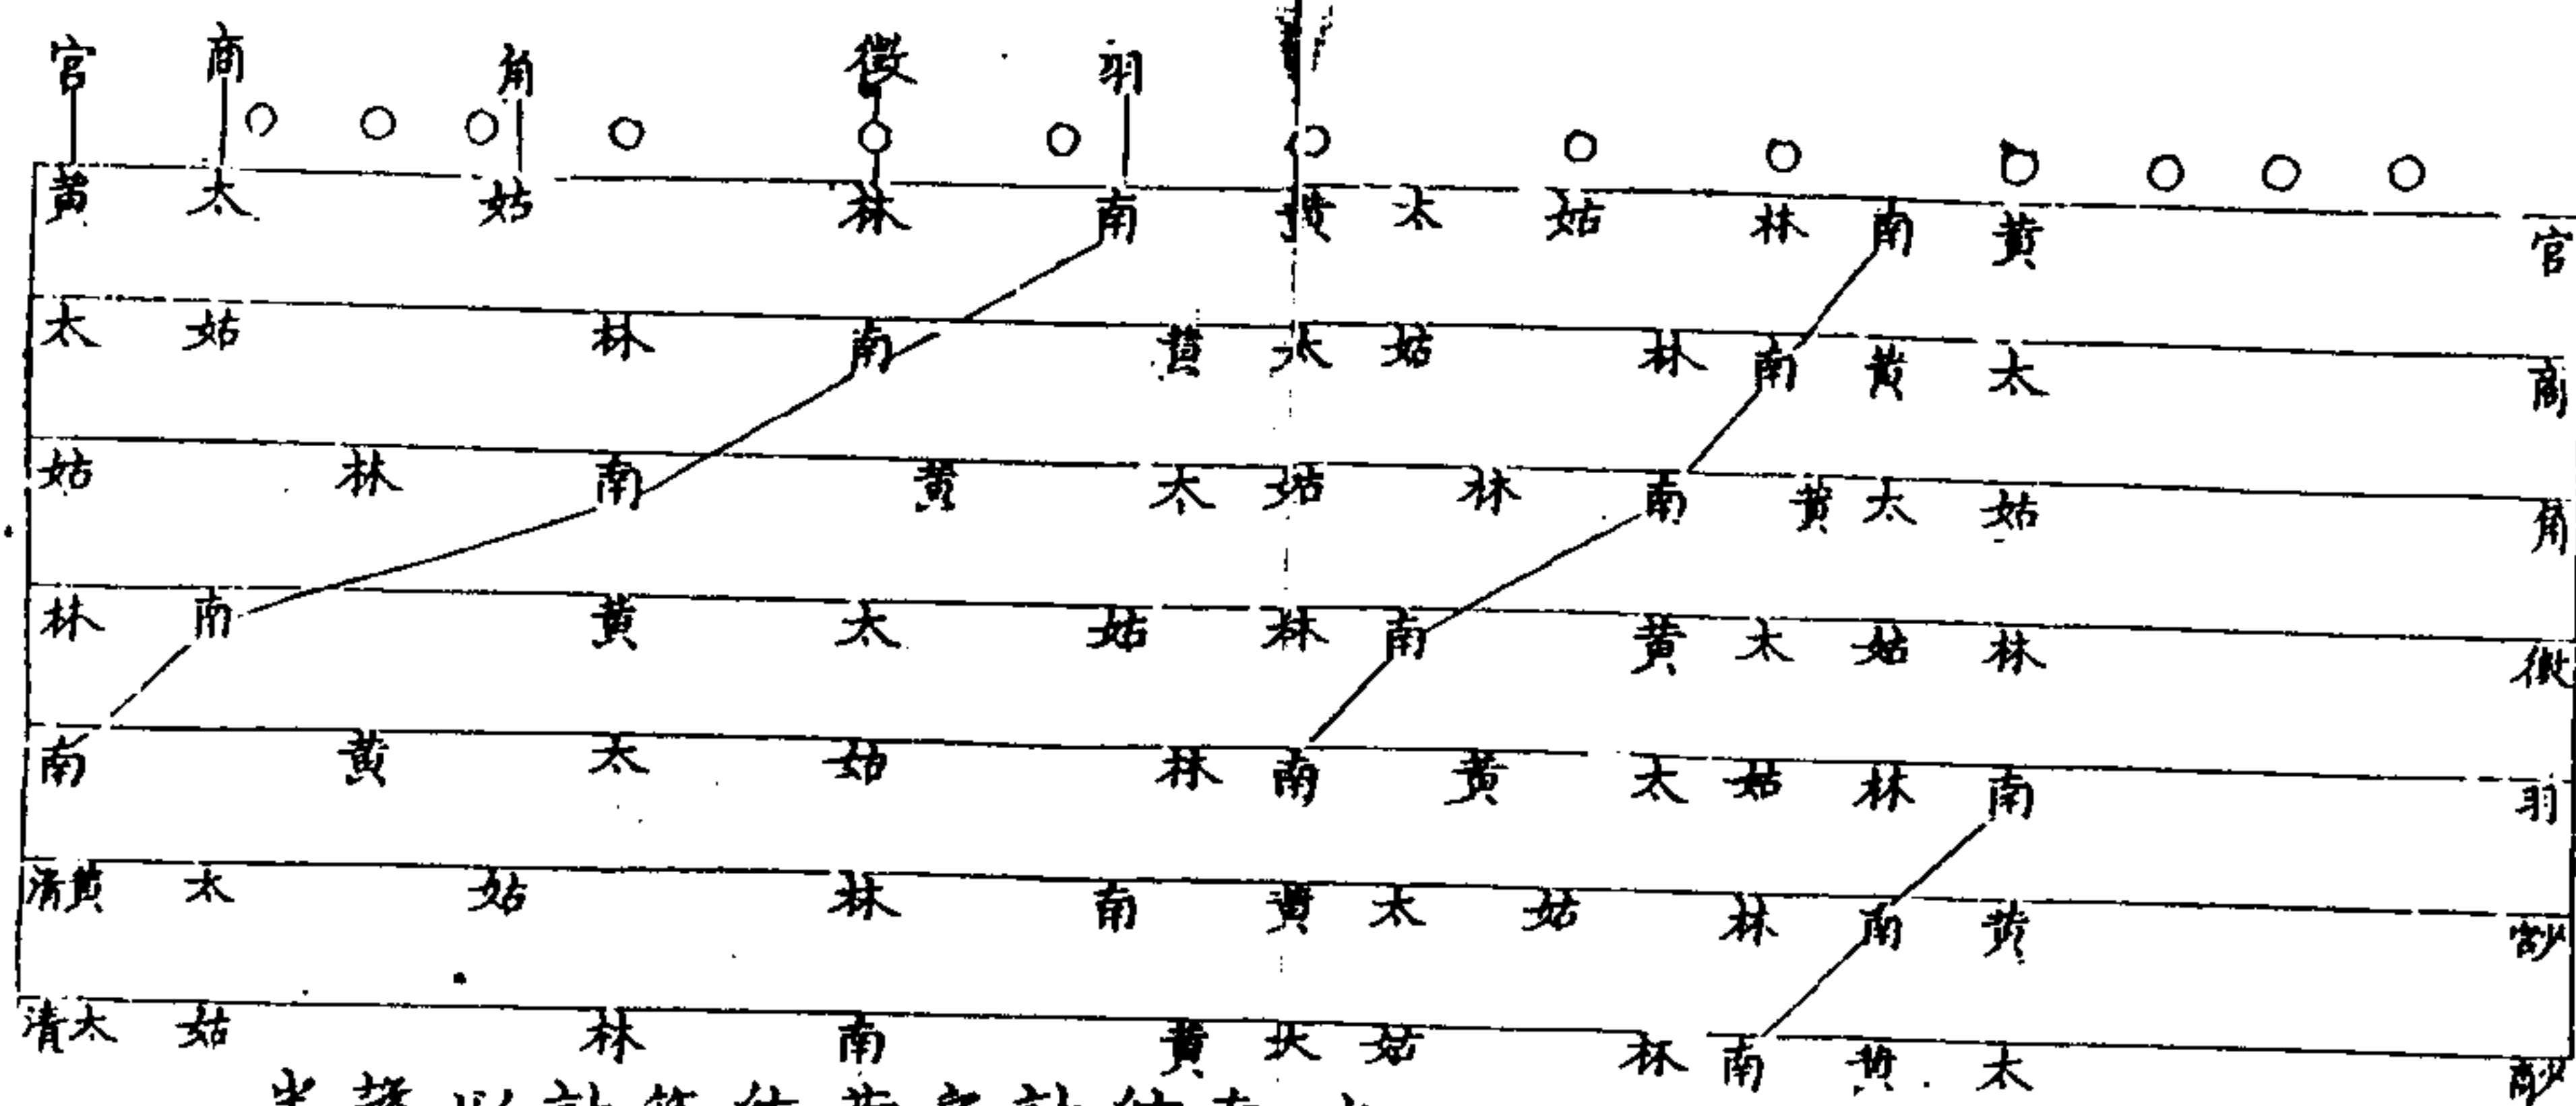 宮 商 角 徵 羽
黃 太 姑 林 南 黃 太 姑 林 南 黃 宮
太 姑 林 南 黃 太 姑 林 南 黃 太 商
姑 林 南 黃 太 姑 林 南 黃 太 姑 角
林 南 黃 太 姑 林 南 黃 太 姑 林 徵
南 黃 太 姑 林 南 黃 太 姑 林 南 羽
清黃 太 姑 林 南 黃 太 姑 林 南 黃 少宮
清太 姑 林 南 黃 太 姑 林 南 黃 太 少商